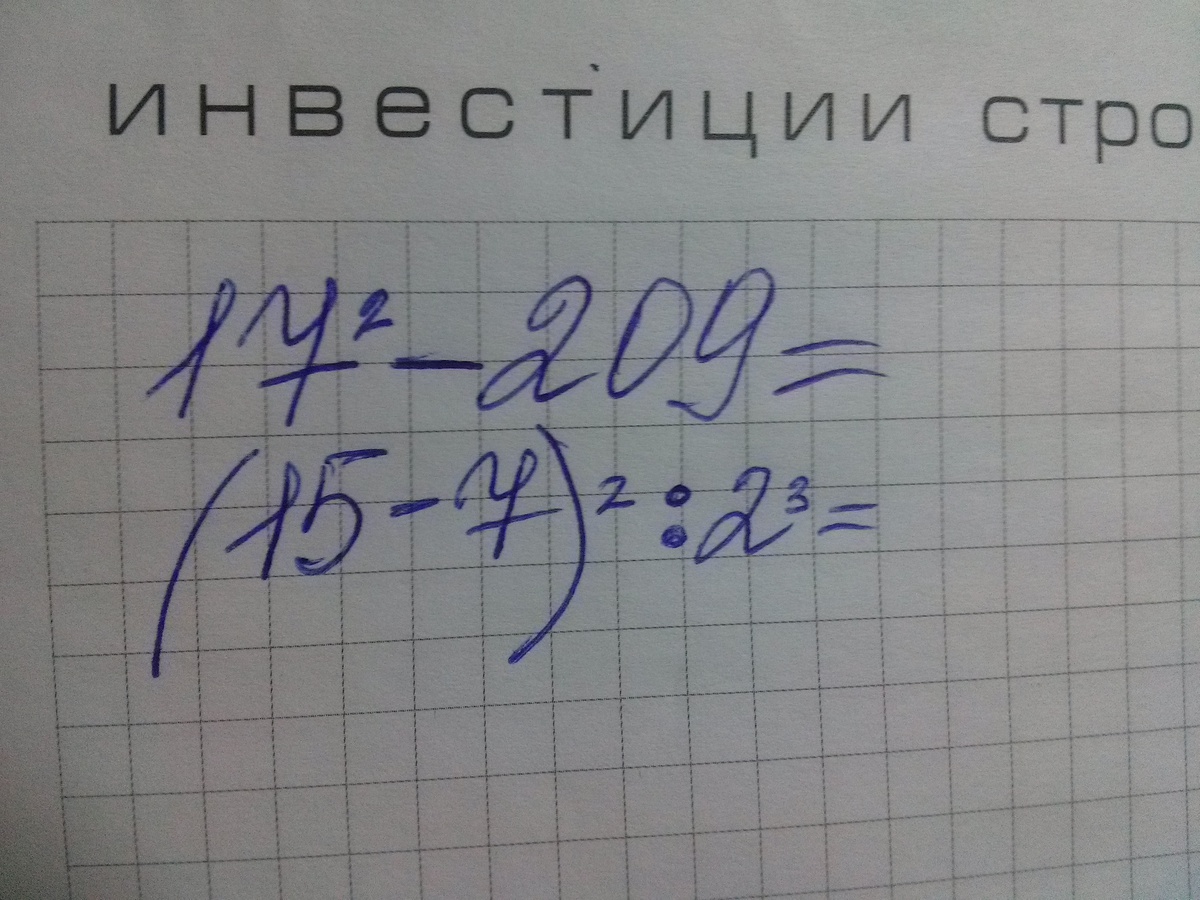 инвестиции стро
17² – 209 =
(15 - 7)² : 2³ =